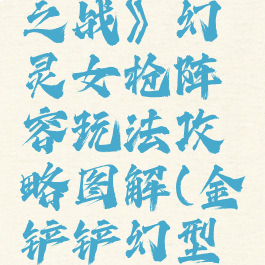 之战》幻
灵女枪阵
容玩法攻
略图解(金
铲铲幻型